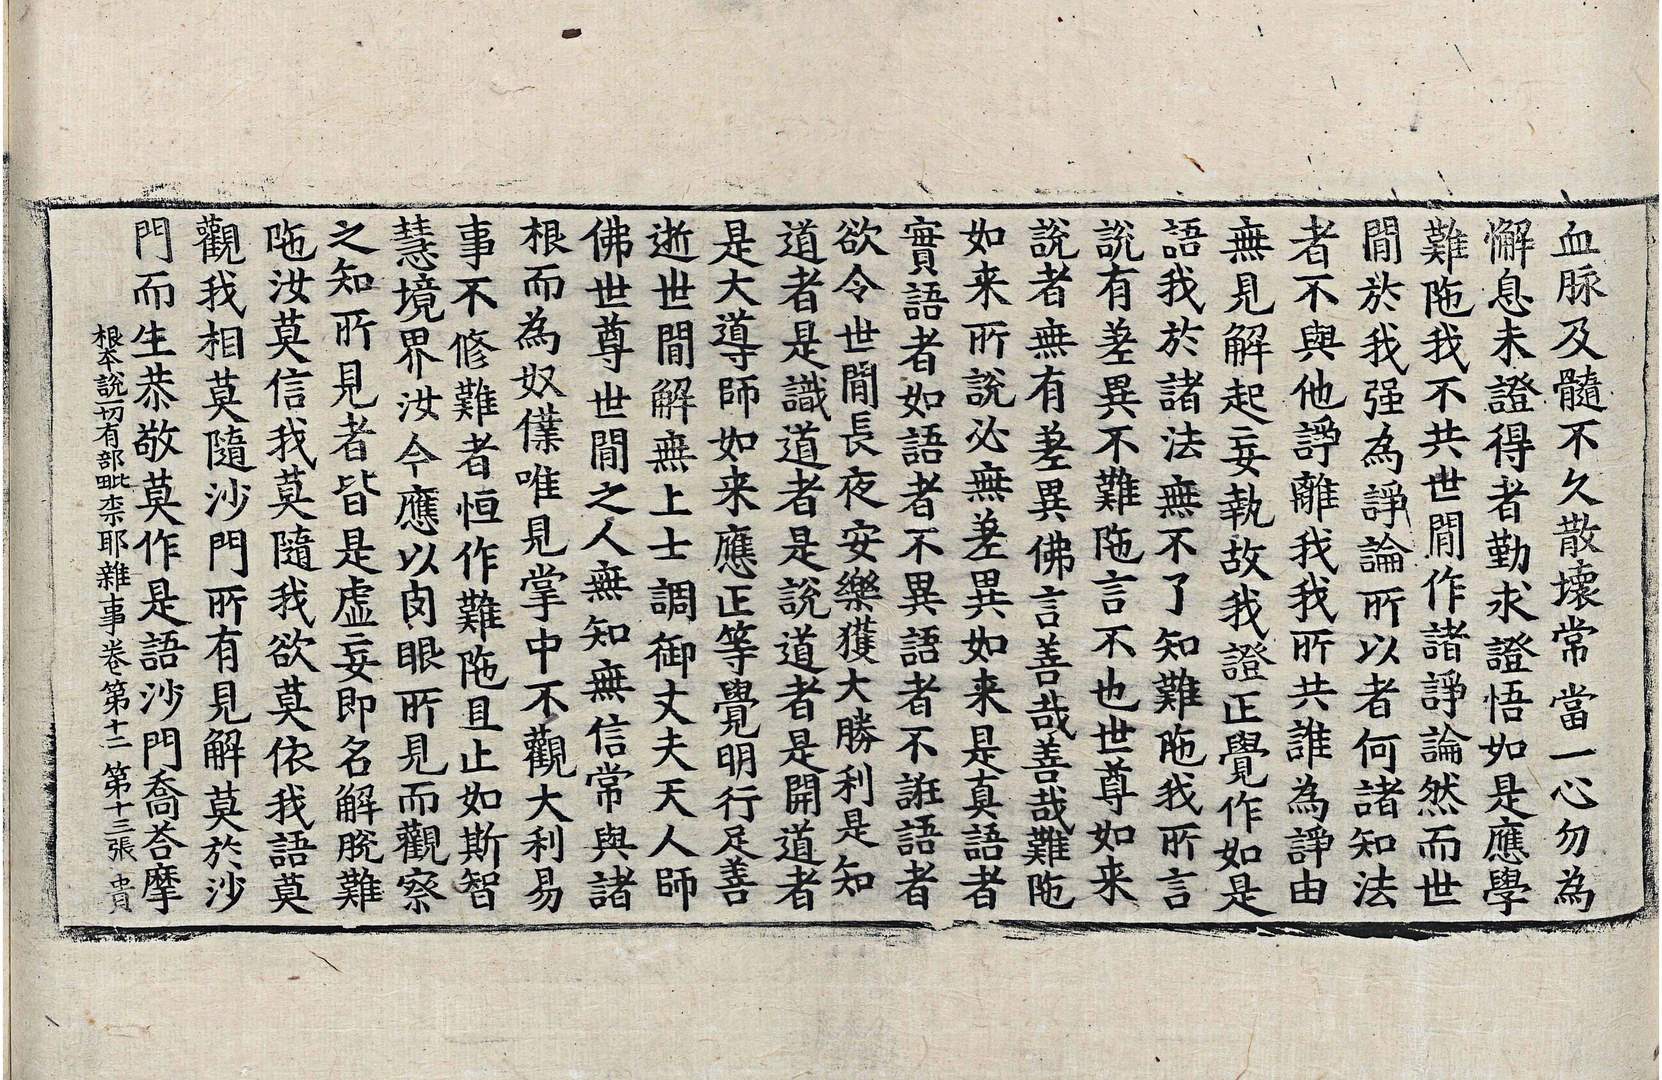 血脉及髓不久散壞常當一心勿為
懈息未證得者勤求證悟如是應學
難陁我不共世間作諸諍論然而世
間於我强為諍論所以者何諸知法
者不與他諍離我我所共誰為諍由
無見解起妄執故我證正覺作如是
語我於諸法無不了知難陁我所言
說有差異不難陁言不也世尊如来
說者無有差異佛言善哉善哉難陁
如来所說必無差異如来是真語者
實語者如語者不異語者不誑語者
欲令世間長夜安樂獲大勝利是知
道者是識道者是說道者是開道者
是大導師如来應正等覺明行足善
逝世間解無上士調御丈夫天人師
佛世尊世間之人無知無信常與諸
根而為奴僕唯見掌中不觀大利易
事不修難者恒作難陁且止如斯智
慧境界汝今應以肉眼所見而觀察
之知所見者皆是虛妄即名解脫難
陁汝莫信我莫隨我欲莫依我語莫
觀我相莫隨沙門所有見解莫於沙
門而生恭敬莫作是語沙門喬荅摩
根本說一切有部毗柰耶雜事卷第十二 第十三張 貴